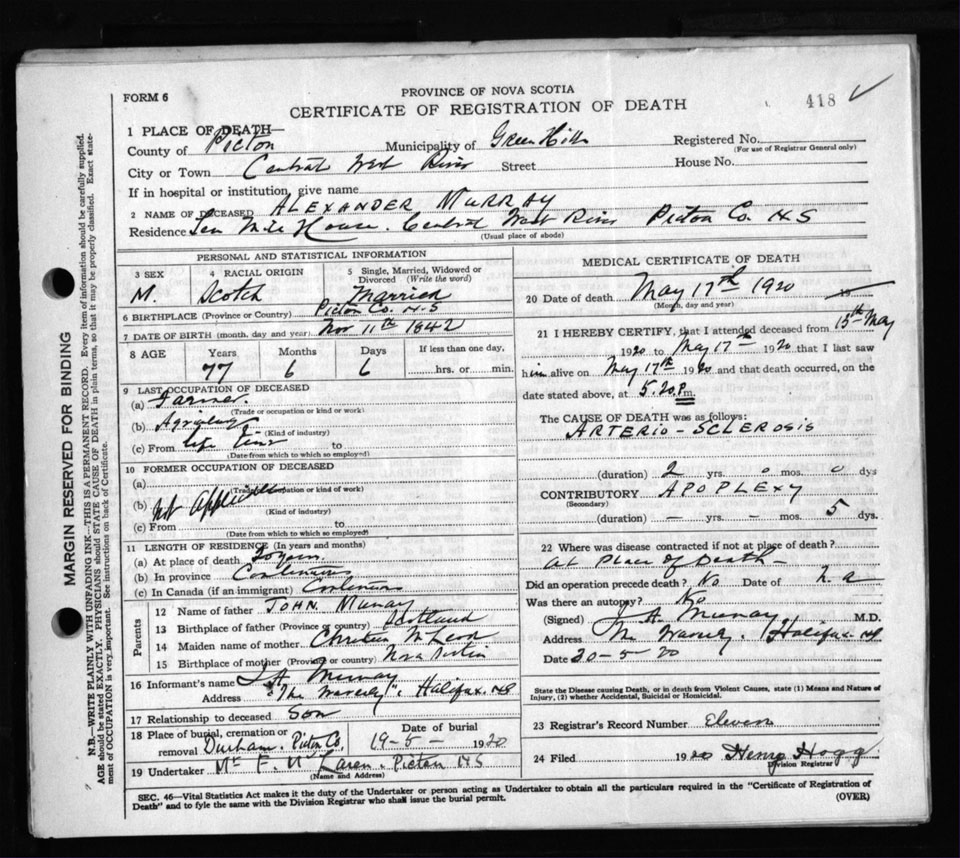 PROVINCE OF NOVA SCOTIA
FORM 6
CERTIFICATE OF REGISTRATION OF DEATH
418
1 PLACE OF DEATH—
County of Picton Municipality of Green Hill Registered No.
(For use of Registrar General only)
City or Town Central West River Street House No.
If in hospital or institution, give name
2 NAME OF DECEASED ALEXANDER MURRAY
Residence Ten Mile House. Central West River Picton Co. N.S
(Usual place of abode)
PERSONAL AND STATISTICAL INFORMATION
3 SEX 4 RACIAL ORIGIN 5 Single, Married, Widowed or Divorced (Write the word)
M. Scotch Married
6 BIRTHPLACE (Province or Country) Picton Co. N.S
7 DATE OF BIRTH (month, day and year) Nov 11th 1842
8 AGE Years Months Days If less than one day,
77 6 6 hrs. or min.
9 LAST OCCUPATION OF DECEASED
(a) Farmer
(Trade or occupation or kind or work)
(b)
(Kind of industry)
(c) From life time to
(Date from which to which so employed)
10 FORMER OCCUPATION OF DECEASED
(a)
(Trade, occupation or kind of work)
(b) Not
(Kind of industry)
(c) From to
(Date from which to which so employed)
11 LENGTH OF RESIDENCE (In years and months)
(a) At place of death
(b) In province
(c) In Canada (if an immigrant)
Parents
12 Name of father JOHN. Murray
13 Birthplace of father (Province or country) Scotland
14 Maiden name of mother
15 Birthplace of mother (Province or country) Nova Scotia
16 Informant's name J A Murray
Address "The Waverly". Halifax. NS
17 Relationship to deceased Son
18 Place of burial, cremation or removal Durham. Picton Co. Date of burial 19-5-1920
19 Undertaker Picton NS
(Name and Address)
MEDICAL CERTIFICATE OF DEATH
20 Date of death May 17th 1920 19
(Month, day and year)
21 I HEREBY CERTIFY, that I attended deceased from 15th May
1920 to May 17th 1920 that I last saw
him alive on May 17th 1920 and that death occurred, on the
date stated above, at 5.20 Pm.
The CAUSE OF DEATH was as follows:
ARTERIO-SCLEROSIS
(duration) 2 yrs. 0 mos. 0 dys
CONTRIBUTORY APOPLEXY
(Secondary)
(duration) — yrs. — mos. 5 dys.
22 Where was disease contracted if not at place of death?
At Place of Death —
Did an operation precede death? No Date of n. a
Was there an autopsy? No
(Signed) J A Murray M.D.
Address Waverly. Halifax. NS
Date 20-5-20
State the Disease causing Death, or in death from Violent Causes, state (1) Means and Nature of
Injury, (2) whether Accidental, Suicidal or Homicidal.
23 Registrar's Record Number Eleven
24 Filed 1920 Henry Hogg
Division Registrar
SEC. 46—Vital Statistics Act makes it the duty of the Undertaker or person acting as Undertaker to obtain all the particulars required in the "Certificate of Registration of
Death" and to fyle the same with the Division Registrar who shall issue the burial permit. (OVER)
MARGIN RESERVED FOR BINDING
N.B.—WRITE PLAINLY WITH UNFADING INK—THIS IS A PERMANENT RECORD. Every item of information should be carefully supplied.
AGE should be stated EXACTLY. PHYSICIANS should STATE CAUSE OF DEATH in plain terms, so that it may be properly classified. Exact statement of OCCUPATION is very important. See instructions on back of Certificate.